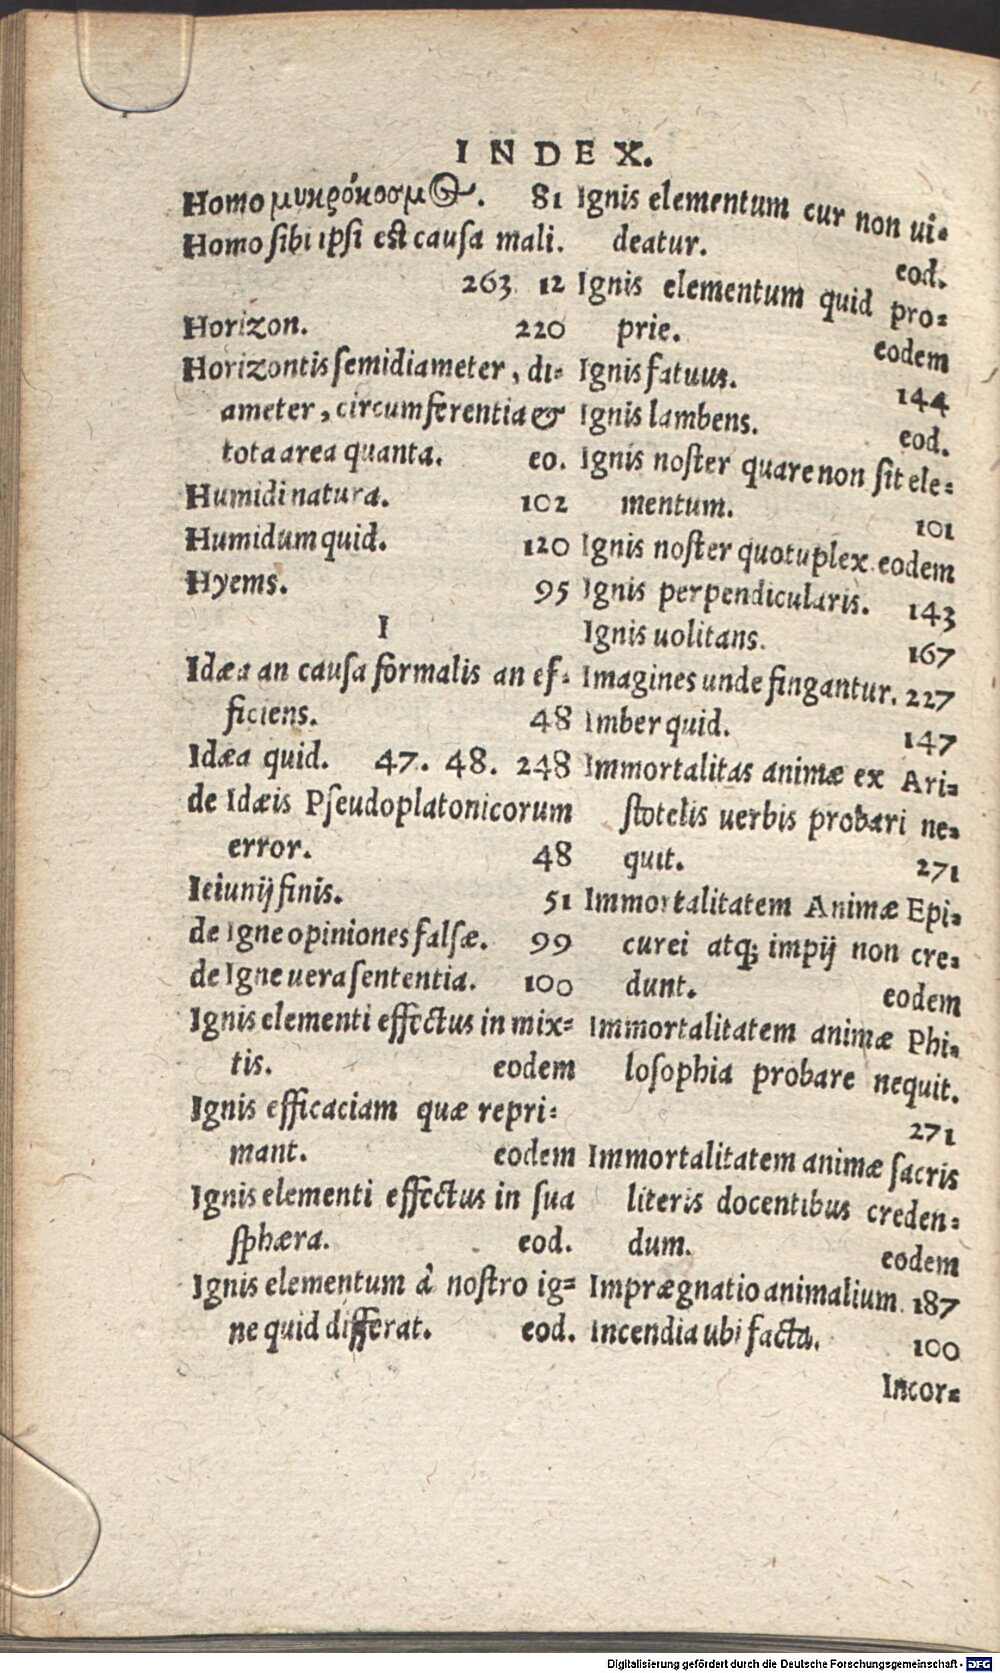 INDEX.
Homo μικρόκοσμος. 81
Homo sibi ipsi est causa mali.
263 12
Horizon. 220
Horizontis semidiameter, di=
ameter, circumferentia &
tota area quanta. eo.
Humidi natura. 102
Humidum quid. 120
Hyems. 95
I
Idæa an causa formalis an ef=
ficiens. 48
Idæa quid. 47. 48. 248
de Idæis Pseudoplatonicorum
error. 48
Ieiunij finis. 51
de Igne opiniones falsæ. 99
de Igne uera sententia. 100
Ignis elementi effectus in mix=
tis. eodem
Ignis efficaciam quæ repri=
mant. eodem
Ignis elementi effectus in sua
sphæra. eod.
Ignis elementum à nostro ig=
ne quid differat. eod.
Ignis elementum cur non ui=
deatur. eod.
Ignis elementum quid pro=
prie. eodem
Ignis fatuus. 144
Ignis lambens. eod.
Ignis noster quare non sit ele=
mentum. 101
Ignis noster quotuplex. eodem
Ignis perpendicularis. 143
Ignis uolitans. 167
Imagines unde fingantur. 227
Imber quid. 147
Immortalitas animæ ex Ari=
stotelis uerbis probari ne=
quit. 271
Immortalitatem Animæ Epi=
curei atq; impij non cre=
dunt. eodem
Immortalitatem animæ Phi=
losophia probare nequit.
271
Immortalitatem animæ sacris
literis docentibus creden=
dum. eodem
Imprægnatio animalium. 187
Incendia ubi facta. 100
Incor=
Digitalisierung gefördert durch die Deutsche Forschungsgemeinschaft - DFG